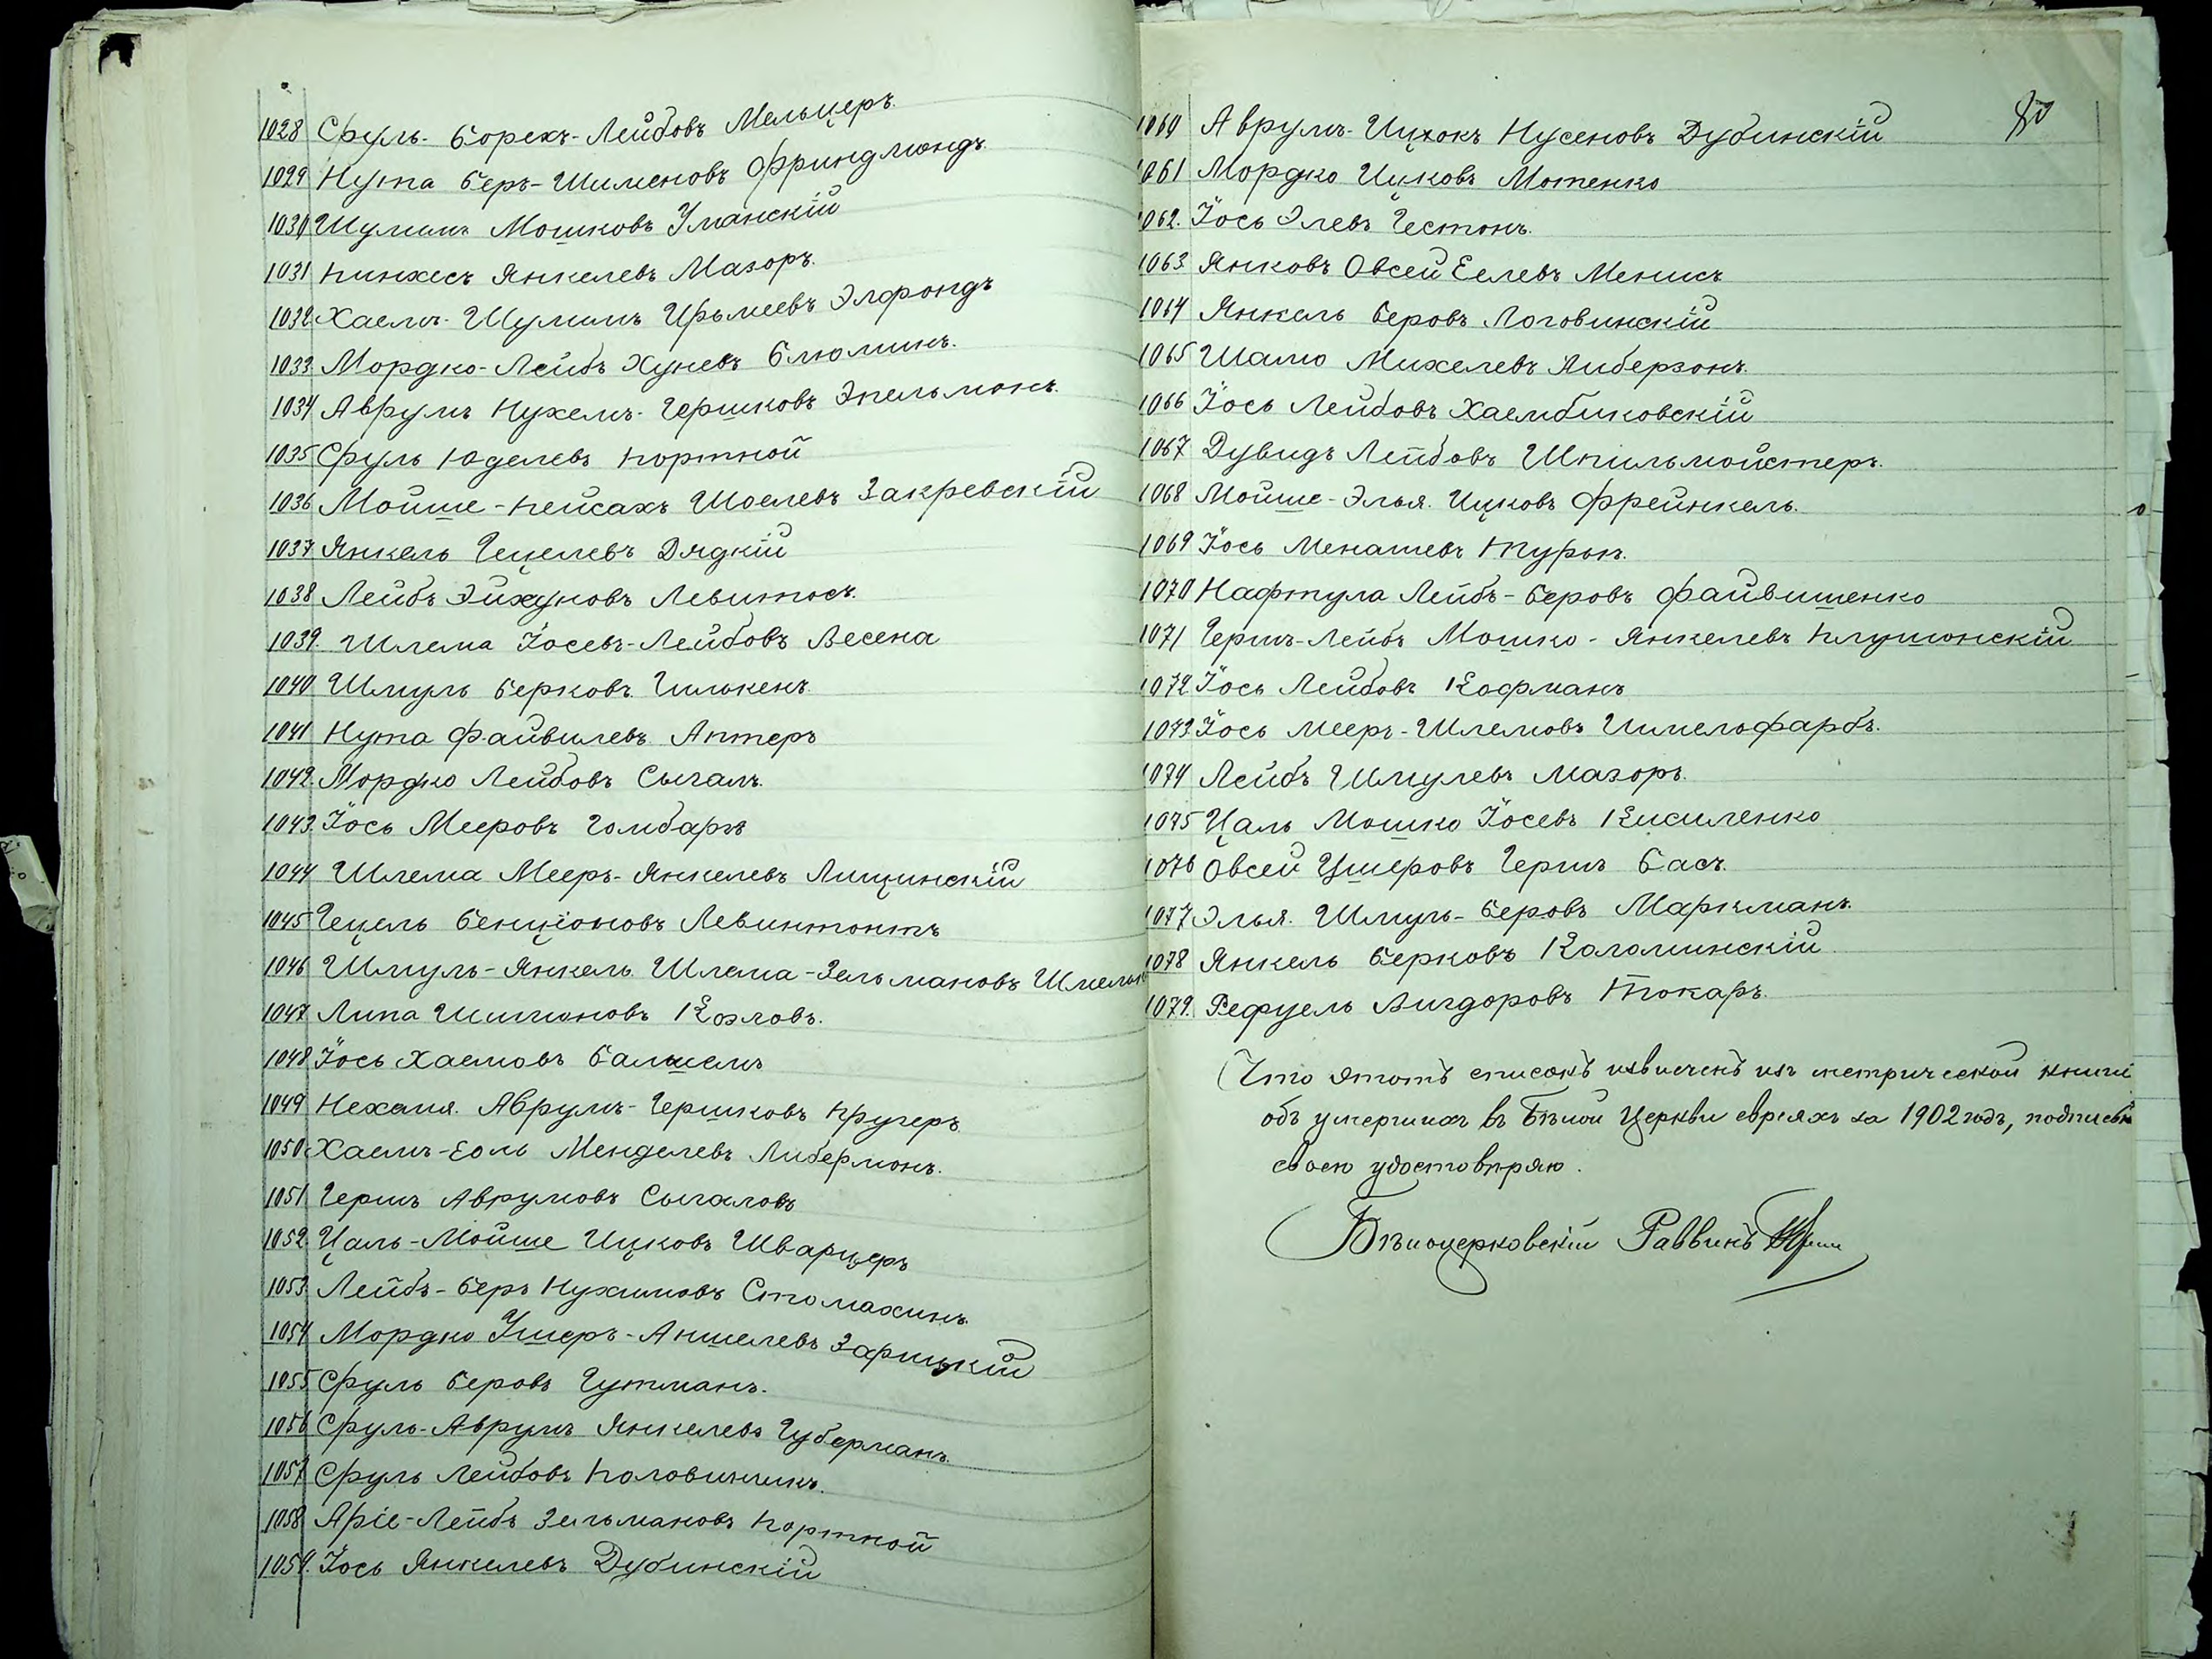 1028 Сруль-Борехъ-Лейбовъ Мельцеръ.
1029 Нута Беръ-Шименовъ Фриндмондъ
1030 Шулимъ Мошковъ Уманскій
1031 Пинхесъ Янкелевъ Мазоръ.
1032 Хаемъ-Шулимъ Ирьмеевъ Элфондъ
1033 Мордко-Лейбъ Хуневъ Блюминъ.
1034 Аврумъ Нухемъ-Гершковъ Эпельмонъ.
1035 Сруль Юделевъ Портной
1036 Мойше-Пейсахъ Шоелевъ Закревскій
1037 Янкель Гецелевъ Дядкій
1038 Лейбъ Левитосъ.
1039. Шлема Іосевъ-Лейбовъ Весена
1040 Шмуль Берковъ Гилькенъ.
1041 Нута Файвилевъ Аптеръ
1042. Мордко Лейбовъ Сыгалъ.
1043. Іось Мееровъ Гомбаргъ
1044 Шлема Мееръ-Янкелевъ Лищинскій
1045 Гецель Бенціоновъ Левинтонтъ
1046 Шмуль-Янкель Шлема-Зельмановъ
1047 Липа Шимоновъ Козловъ.
1048. Іось Хаемовъ Балшемъ
1049 Нехамя. Аврумъ-Гершковъ Кругеръ
1050 Хаемъ-Еоль Менделевъ Либермонъ.
1051 Гершъ Аврумовъ Сыгаловъ
1052. Цаль-Мойше Ицковъ Шварцеръ
1053. Лейбъ-Беръ Нухимовъ Стомахинъ.
1054 Мордко Ушеръ-Аншелевъ Зарицкій
1055 Сруль Беровъ Гутманъ.
1056 Сруль-Аврумъ Янкелевъ Губерманъ.
1057 Сруль Лейбовъ Половинчикъ.
1058. Аріе-Лейбъ Зельмановъ Портной
1059. Іось Янкелевъ Дубинскій
80
1060 Аврумъ-Ицхокъ Нусеновъ Дубинскій
1061 Мордко Ицковъ Мотенко
1062. Іось Элевъ Честонъ.
1063 Янковъ Овсей Еелевъ Менисъ
1064 Янкель Беровъ Логовинскій
1065 Шамо Михелевъ Либерзонъ.
1066 Іось Лейбовъ Хаембиковскій
1067 Дувидъ Лейбовъ Шпильмойстеръ.
1068 Мойше-Элья. Ицковъ Френкель.
1069 Іось Менашевъ Турьн.
1070 Нафтула Лейбъ-Беровъ Файвишенко
1071 Гершъ-Лейбъ Мошко-Янкелевъ Плушонскій
1072 Іось Лейбовъ Кофманъ
1073. Іось Мееръ-Шлемовъ Гимельфарбъ.
1074 Лейбъ Шмулевъ Мазоръ.
1075 Цаль Мошко Іосевъ Кисиленко
1076 Овсей Ушеровъ Гершъ Басъ.
1077 Элья. Шмуль-Беровъ Маркманъ.
1078 Янкель Берковъ Каломинскій
1079. Рефуель Вигдоровъ Токаръ.
Что этотъ списокъ извлеченъ изъ метрической книги
объ умершихъ въ Бѣлой Церкви евреяхъ за 1902 годъ, подписью
своею удостовѣряю.
Бѣлоцерковскій Раввинъ